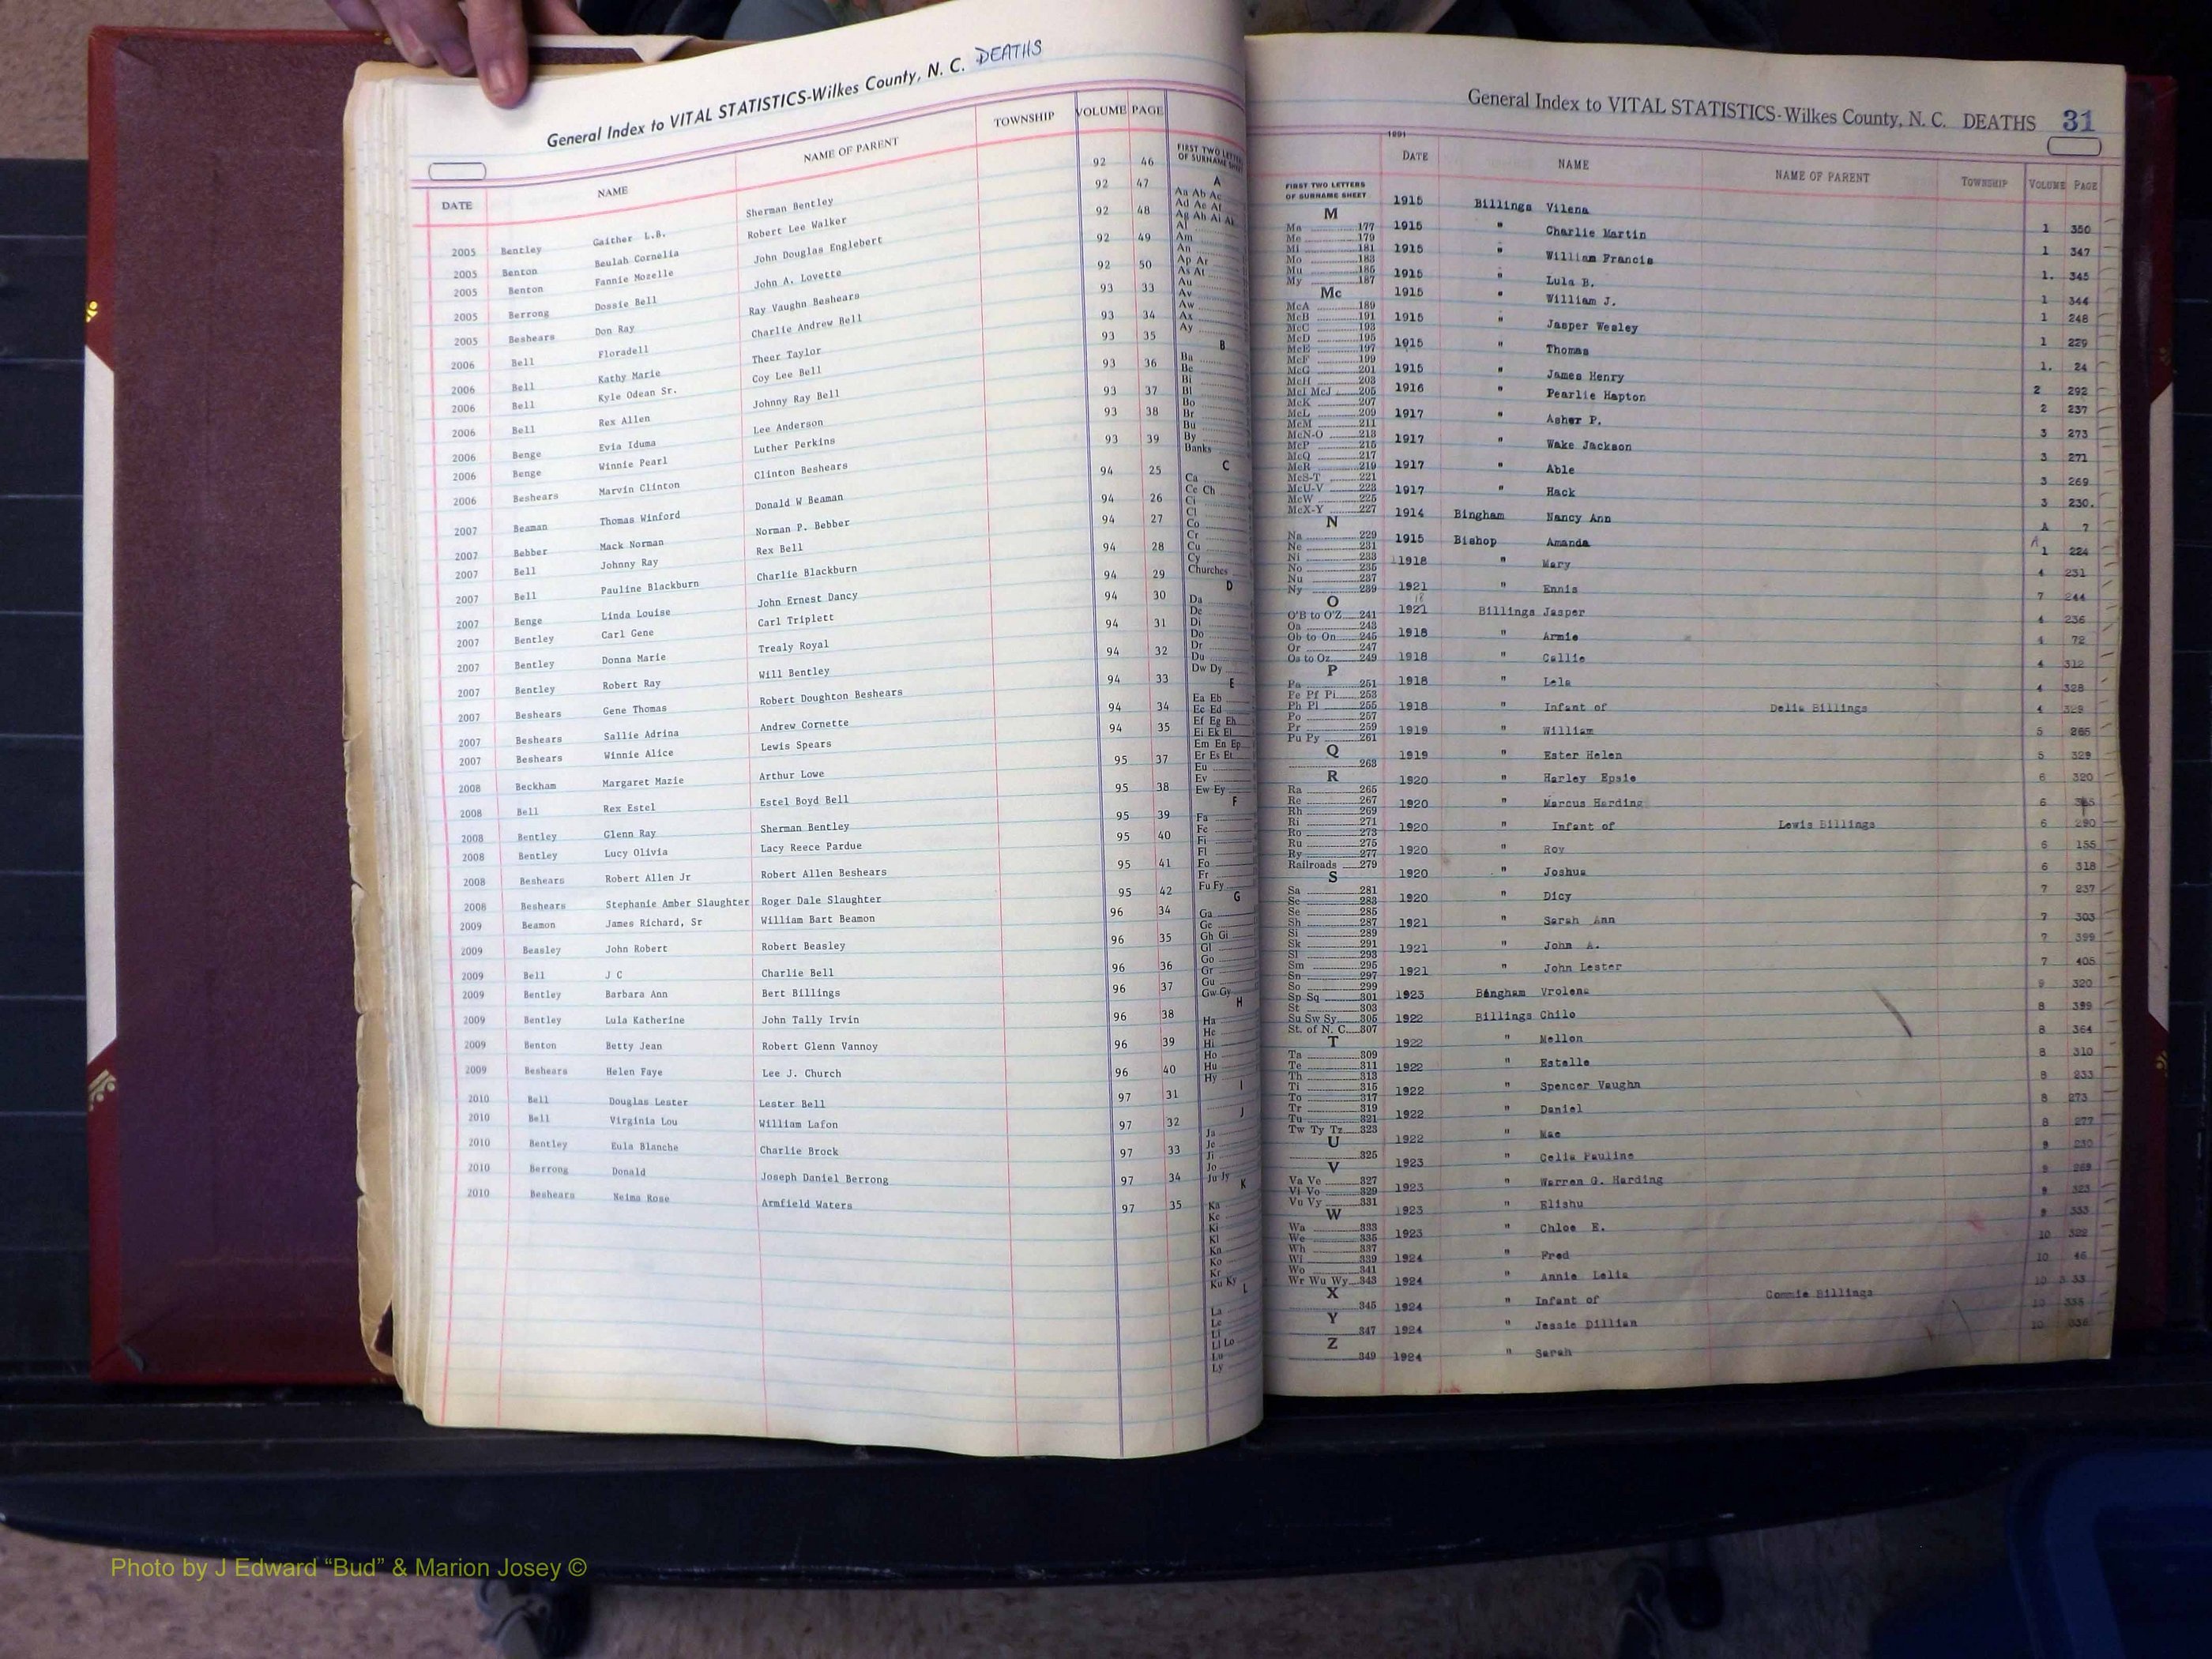 General Index to VITAL STATISTICS-Wilkes County, N. C. DEATHS
DATE NAME NAME OF PARENT TOWNSHIP VOLUME PAGE
2005 Bentley Gaither L.B. Sherman Bentley 92 46
2005 Benton Beulah Cornelia Robert Lee Walker 92 47
2005 Benton Fannie Mozelle John Douglas Englebert 92 48
2005 Berrong Dossie Bell John A. Lovette 92 49
2005 Beshears Don Ray Ray Vaughn Beshears 92 50
2006 Bell Floradell Charlie Andrew Bell 93 33
2006 Bell Kathy Marie Theer Taylor 93 34
2006 Bell Kyle Odean Sr. Coy Lee Bell 93 35
2006 Bell Rex Allen Johnny Ray Bell 93 36
2006 Benge Evia Iduma Lee Anderson 93 37
2006 Benge Winnie Pearl Luther Perkins 93 38
2006 Beshears Marvin Clinton Clinton Beshears 93 39
2007 Beaman Thomas Winford Donald W Beaman 94 25
2007 Bebber Mack Norman Norman P. Bebber 94 26
2007 Bell Johnny Ray Rex Bell 94 27
2007 Bell Pauline Blackburn Charlie Blackburn 94 28
2007 Benge Linda Louise John Ernest Dancy 94 29
2007 Bentley Carl Gene Carl Triplett 94 30
2007 Bentley Donna Marie Trealy Royal 94 31
2007 Bentley Robert Ray Will Bentley 94 32
2007 Beshears Gene Thomas Robert Doughton Beshears 94 33
2007 Beshears Sallie Adrina Andrew Cornette 94 34
2007 Beshears Winnie Alice Lewis Spears 94 35
2008 Beckham Margaret Mazie Arthur Lowe 95 37
2008 Bell Rex Estel Estel Boyd Bell 95 38
2008 Bentley Glenn Ray Sherman Bentley 95 39
2008 Bentley Lucy Olivia Lacy Reece Pardue 95 40
2008 Beshears Robert Allen Jr Robert Allen Beshears 95 41
2008 Beshears Stephanie Amber Slaughter Roger Dale Slaughter 95 42
2009 Beamon James Richard, Sr William Bart Beamon 96 34
2009 Beasley John Robert Robert Beasley 96 35
2009 Bell J C Charlie Bell 96 36
2009 Bentley Barbara Ann Bert Billings 96 37
2009 Bentley Lula Katherine John Tally Irvin 96 38
2009 Benton Betty Jean Robert Glenn Vannoy 96 39
2009 Beshears Helen Faye Lee J. Church 96 40
2010 Bell Douglas Lester Lester Bell 97 31
2010 Bell Virginia Lou William Lafon 97 32
2010 Bentley Eula Blanche Charlie Brock 97 33
2010 Berrong Donald Joseph Daniel Berrong 97 34
2010 Beshears Neima Rose Armfield Waters 97 35
FIRST TWO LETTERS
OF SURNAME SHEET
A
Aa Ab Ac
Ad Ae Af
Ag Ah Ai Ak
Al
Am
An
Ap Ar
As At
Au
Av
Aw
Ax
Ay
B
Ba
Be
Bi
Bl
Bo
Br
Bu
By
Banks
C
Ca
Ce Ch
Ci
Cl
Co
Cr
Cu
Cy
Churches
D
Da
De
Di
Do
Dr
Du
Dw Dy
E
Ea Eb
Ec Ed
Ef Eg Eh
Ei Ek El
Em En Ep
Er Es Et
Eu
Ev
Ew Ey
F
Fa
Fe
Fi
Fl
Fo
Fr
Fu Fy
G
Ga
Ge
Gh Gi
Gl
Go
Gr
Gu
Gw Gy
H
Ha
He
Hi
Ho
Hu
Hy
I
J
Ja
Je
Ji
Jo
Ju Jy
K
Ka
Ke
Ki
Kl
Kn
Ko
Kr
Ku Ky
L
La
Le
Li
Ll Lo
Lu
Ly
General Index to VITAL STATISTICS-Wilkes County, N. C. DEATHS 31
1891
FIRST TWO LETTERS
OF SURNAME SHEET
M
Ma 177
Me 179
Mi 181
Mo 183
Mu 185
My 187
Mc
McA 189
McB 191
McC 193
McD 195
McE 197
McF 199
McG 201
McH 203
McI McJ 205
McK 207
McL 209
McM 211
McN-O 213
McP 215
McQ 217
McR 219
McS-T 221
McU-V 223
McW 225
McX-Y 227
N
Na 229
Ne 231
Ni 233
No 235
Nu 237
Ny 239
O
O'B to O'Z 241
Oa 243
Ob to On 245
Or 247
Os to Oz 249
P
Pa 251
Pe Pf Pi 253
Ph Pl 255
Po 257
Pr 259
Pu Py 261
Q
263
R
Ra 265
Re 267
Rh 269
Ri 271
Ro 273
Ru 275
Ry 277
Railroads 279
S
Sa 281
Sc 283
Se 285
Sh 287
Si 289
Sk 291
Sl 293
Sm 295
Sn 297
So 299
Sp Sq 301
St 303
Su Sw Sy 305
St. of N. C. 307
T
Ta 309
Te 311
Th 313
Ti 315
To 317
Tr 319
Tu 321
Tw Ty Tz 323
U
325
V
Va Ve 327
Vi Vo 329
Vu Vy 331
W
Wa 333
We 335
Wh 337
Wi 339
Wo 341
Wr Wu Wy 343
X
345
Y
347
Z
349
DATE NAME NAME OF PARENT TOWNSHIP VOLUME PAGE
1915 Billings Vilena 1 350
1915 " Charlie Martin 1 347
1915 " William Francis 1. 345
1915 " Lula B. 1 344
1915 " William J. 1 248
1915 " Jasper Wesley 1 229
1915 " Thomas 1. 24
1915 " James Henry 2 292
1916 " Pearlie Hapton 2 237
1917 " Asher P. 3 273
1917 " Wake Jackson 3 271
1917 " Able 3 269
1917 " Hack 3 230.
1914 Bingham Nancy Ann A 7
1915 Bishop Amanda 1 224
1918 " Mary 4 231
1921 " Ennis 7 244
1921 Billings Jasper 4 236
1918 " Armie 4 72
1918 " Callie 4 312
1918 " Lela 4 328
1918 " Infant of Delia Billings 4 329
1919 " William 5 265
1919 " Ester Helen 5 329
1920 " Harley Epsie 6 320
1920 " Marcus Harding 6
1920 " Infant of Lewis Billings 6 290
1920 " Roy 6 155
1920 " Joshua 6 318
1920 " Dicy 7 237
1921 " Sarah Ann 7 303
1921 " John A. 7 399
1921 " John Lester 7 405
1923 Bingham Vrolena 9 320
1922 Billings Chilo 8 399
1922 " Mellon 8 364
1922 " Estelle 8 310
1922 " Spencer Vaughn 8 233
1922 " Daniel 8 273
1922 " Mae 8 277
1923 " Celia Pauline 9 230
1923 " Warren G. Harding 9 269
1923 " Elishu 9 323
1923 " Chloe E. 9 333
1924 " Fred 10 322
1924 " Annie Lelia 10 46
1924 " Infant of Commie Billings 10
1924 " Jessie Dillian 10 335
1924 " Sarah 10 336
Photo by J Edward “Bud” & Marion Josey ©